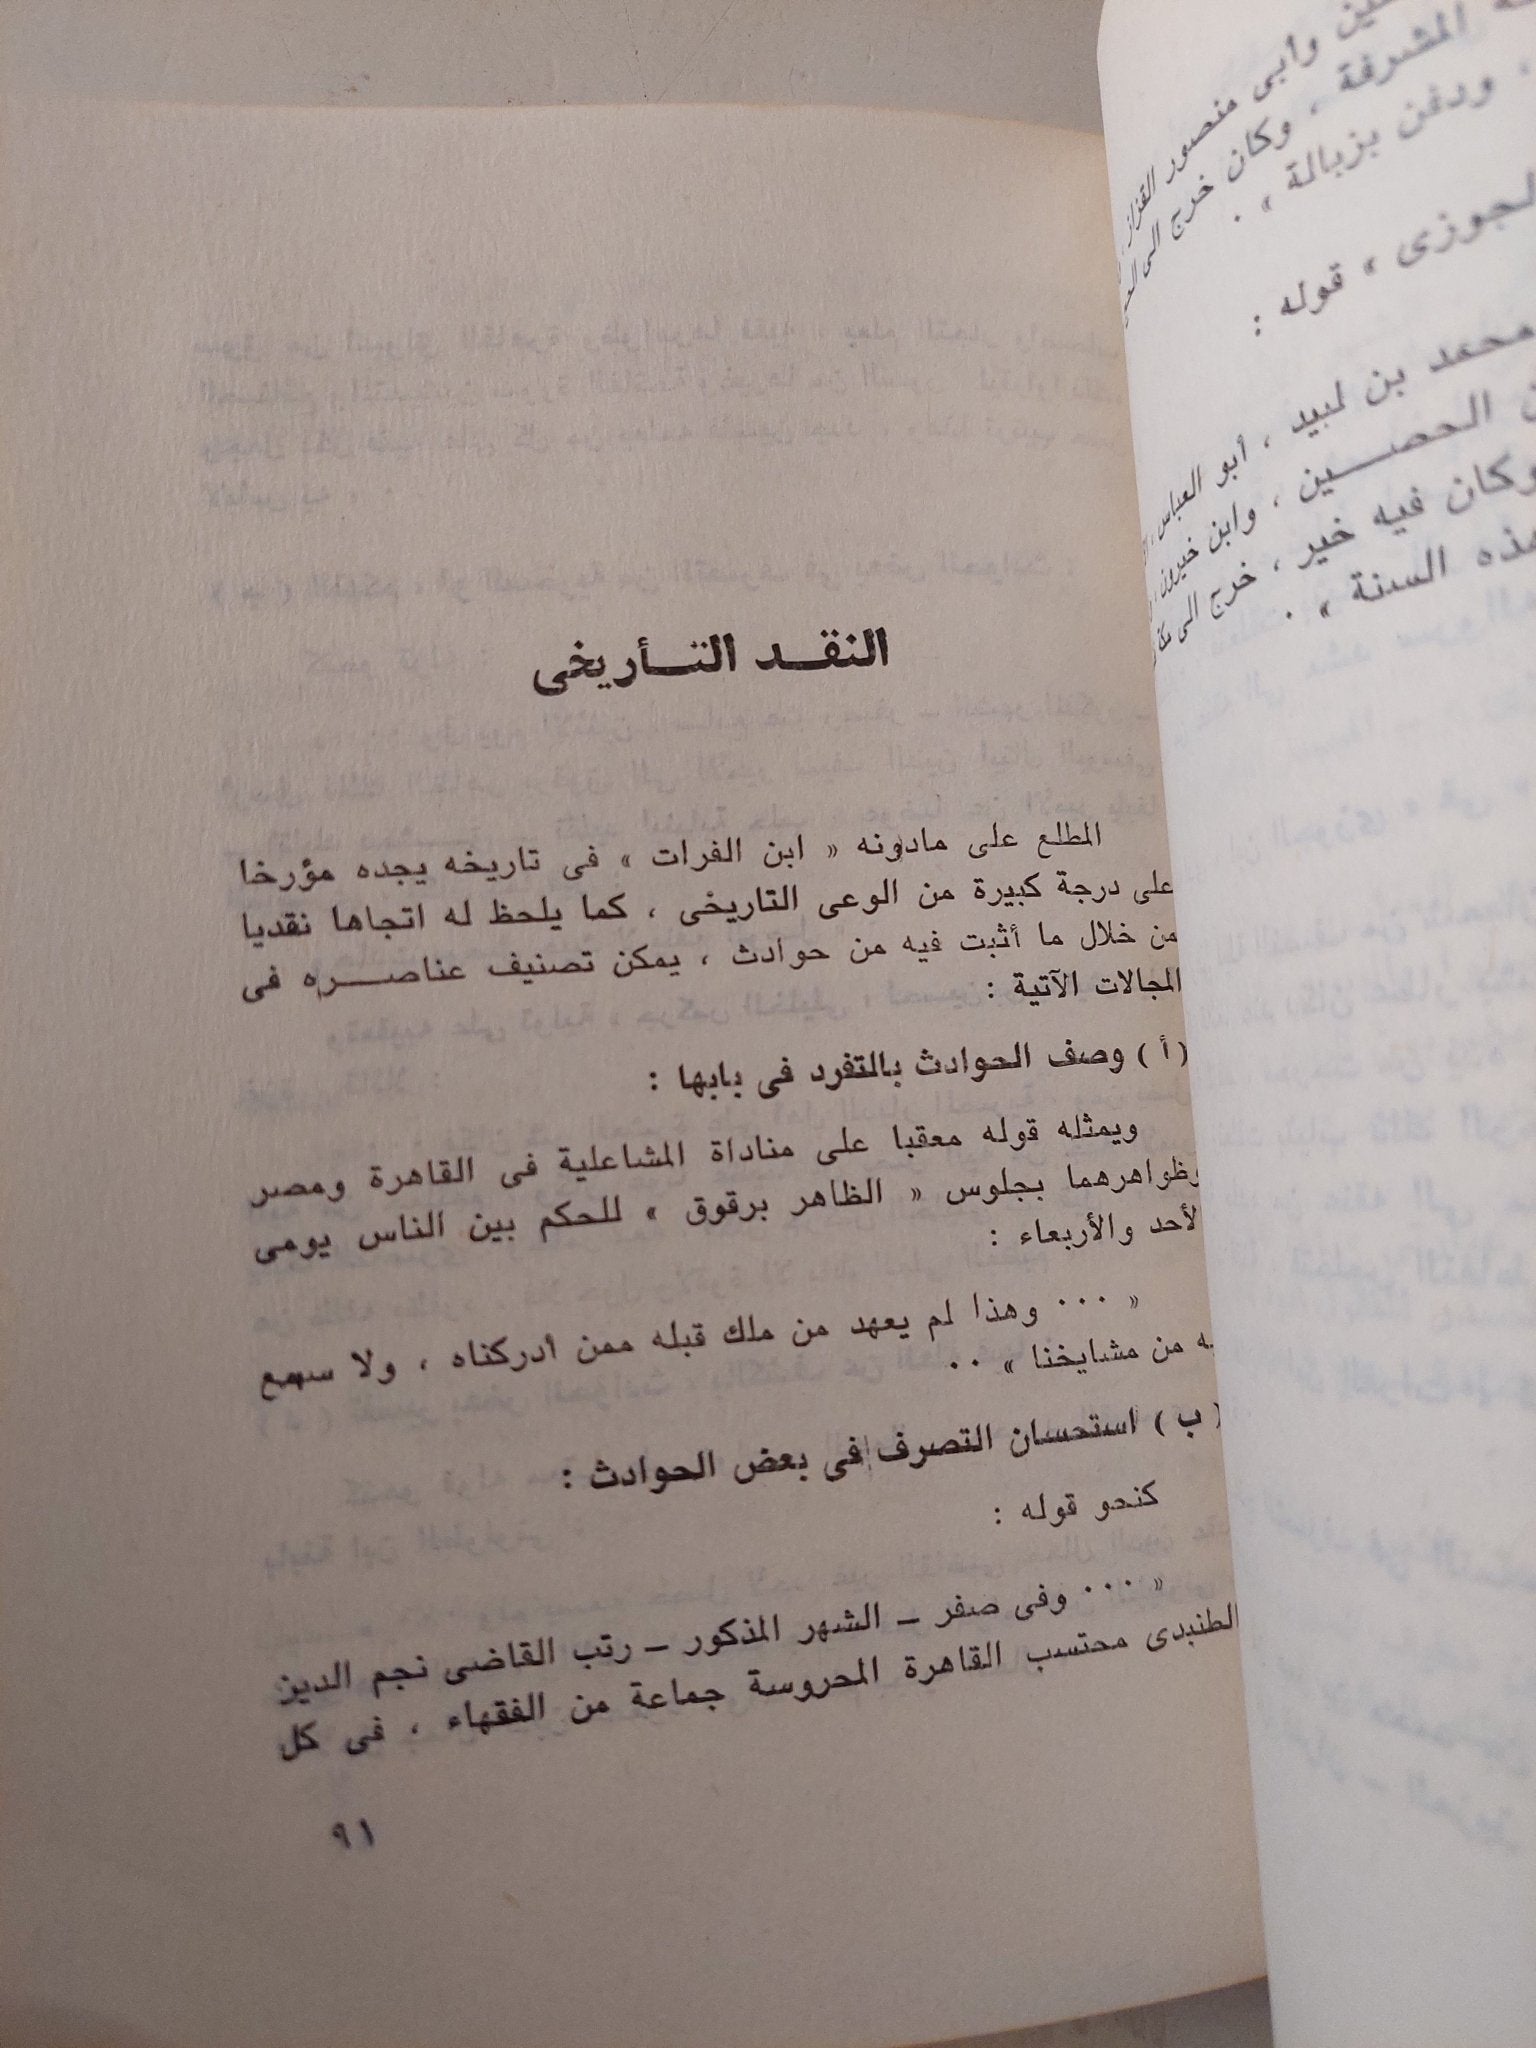 النقد التأريخى
المطلع على مادونه « ابن الفرات » فى تاريخه يجده مؤرخا
على درجة كبيرة من الوعى التاريخى ، كما يلحظ له اتجاها نقديا
من خلال ما أثبت فيه من حوادث ، يمكن تصنيف عناصره فى
المجالات الآتية :
( أ ) وصف الحوادث بالتفرد فى بابها :
ويمثله قوله معقبا على مناداة المشاعلية فى القاهرة ومصر
وظواهرهما بجلوس « الظاهر برقوق » للحكم بين الناس يومى
الأحد والأربعاء :
« ٠٠٠ وهذا لم يعهد من ملك قبله ممن أدركناه ، ولا سمع
به من مشايخنا » ٠٠
( ب ) استحسان التصرف فى بعض الحوادث :
كنحو قوله :
« ٠٠٠ وفى صفر – الشهر المذكور – رتب القاضى نجم الدين
الطنبدى محتسب القاهرة المحروسة جماعة من الفقهاء ، فى كل
٩١
وأبى منصور القزاز
المشرفة ، وكان خرج الى
، ودفن بزبالة » ٠
الجوزى » قوله :
محمد بن لبيد ، أبو العباس ،
الحصين ، وابن خيرون ،
وكان فيه خير ، خرج الى مكة
هذه السنة » ٠